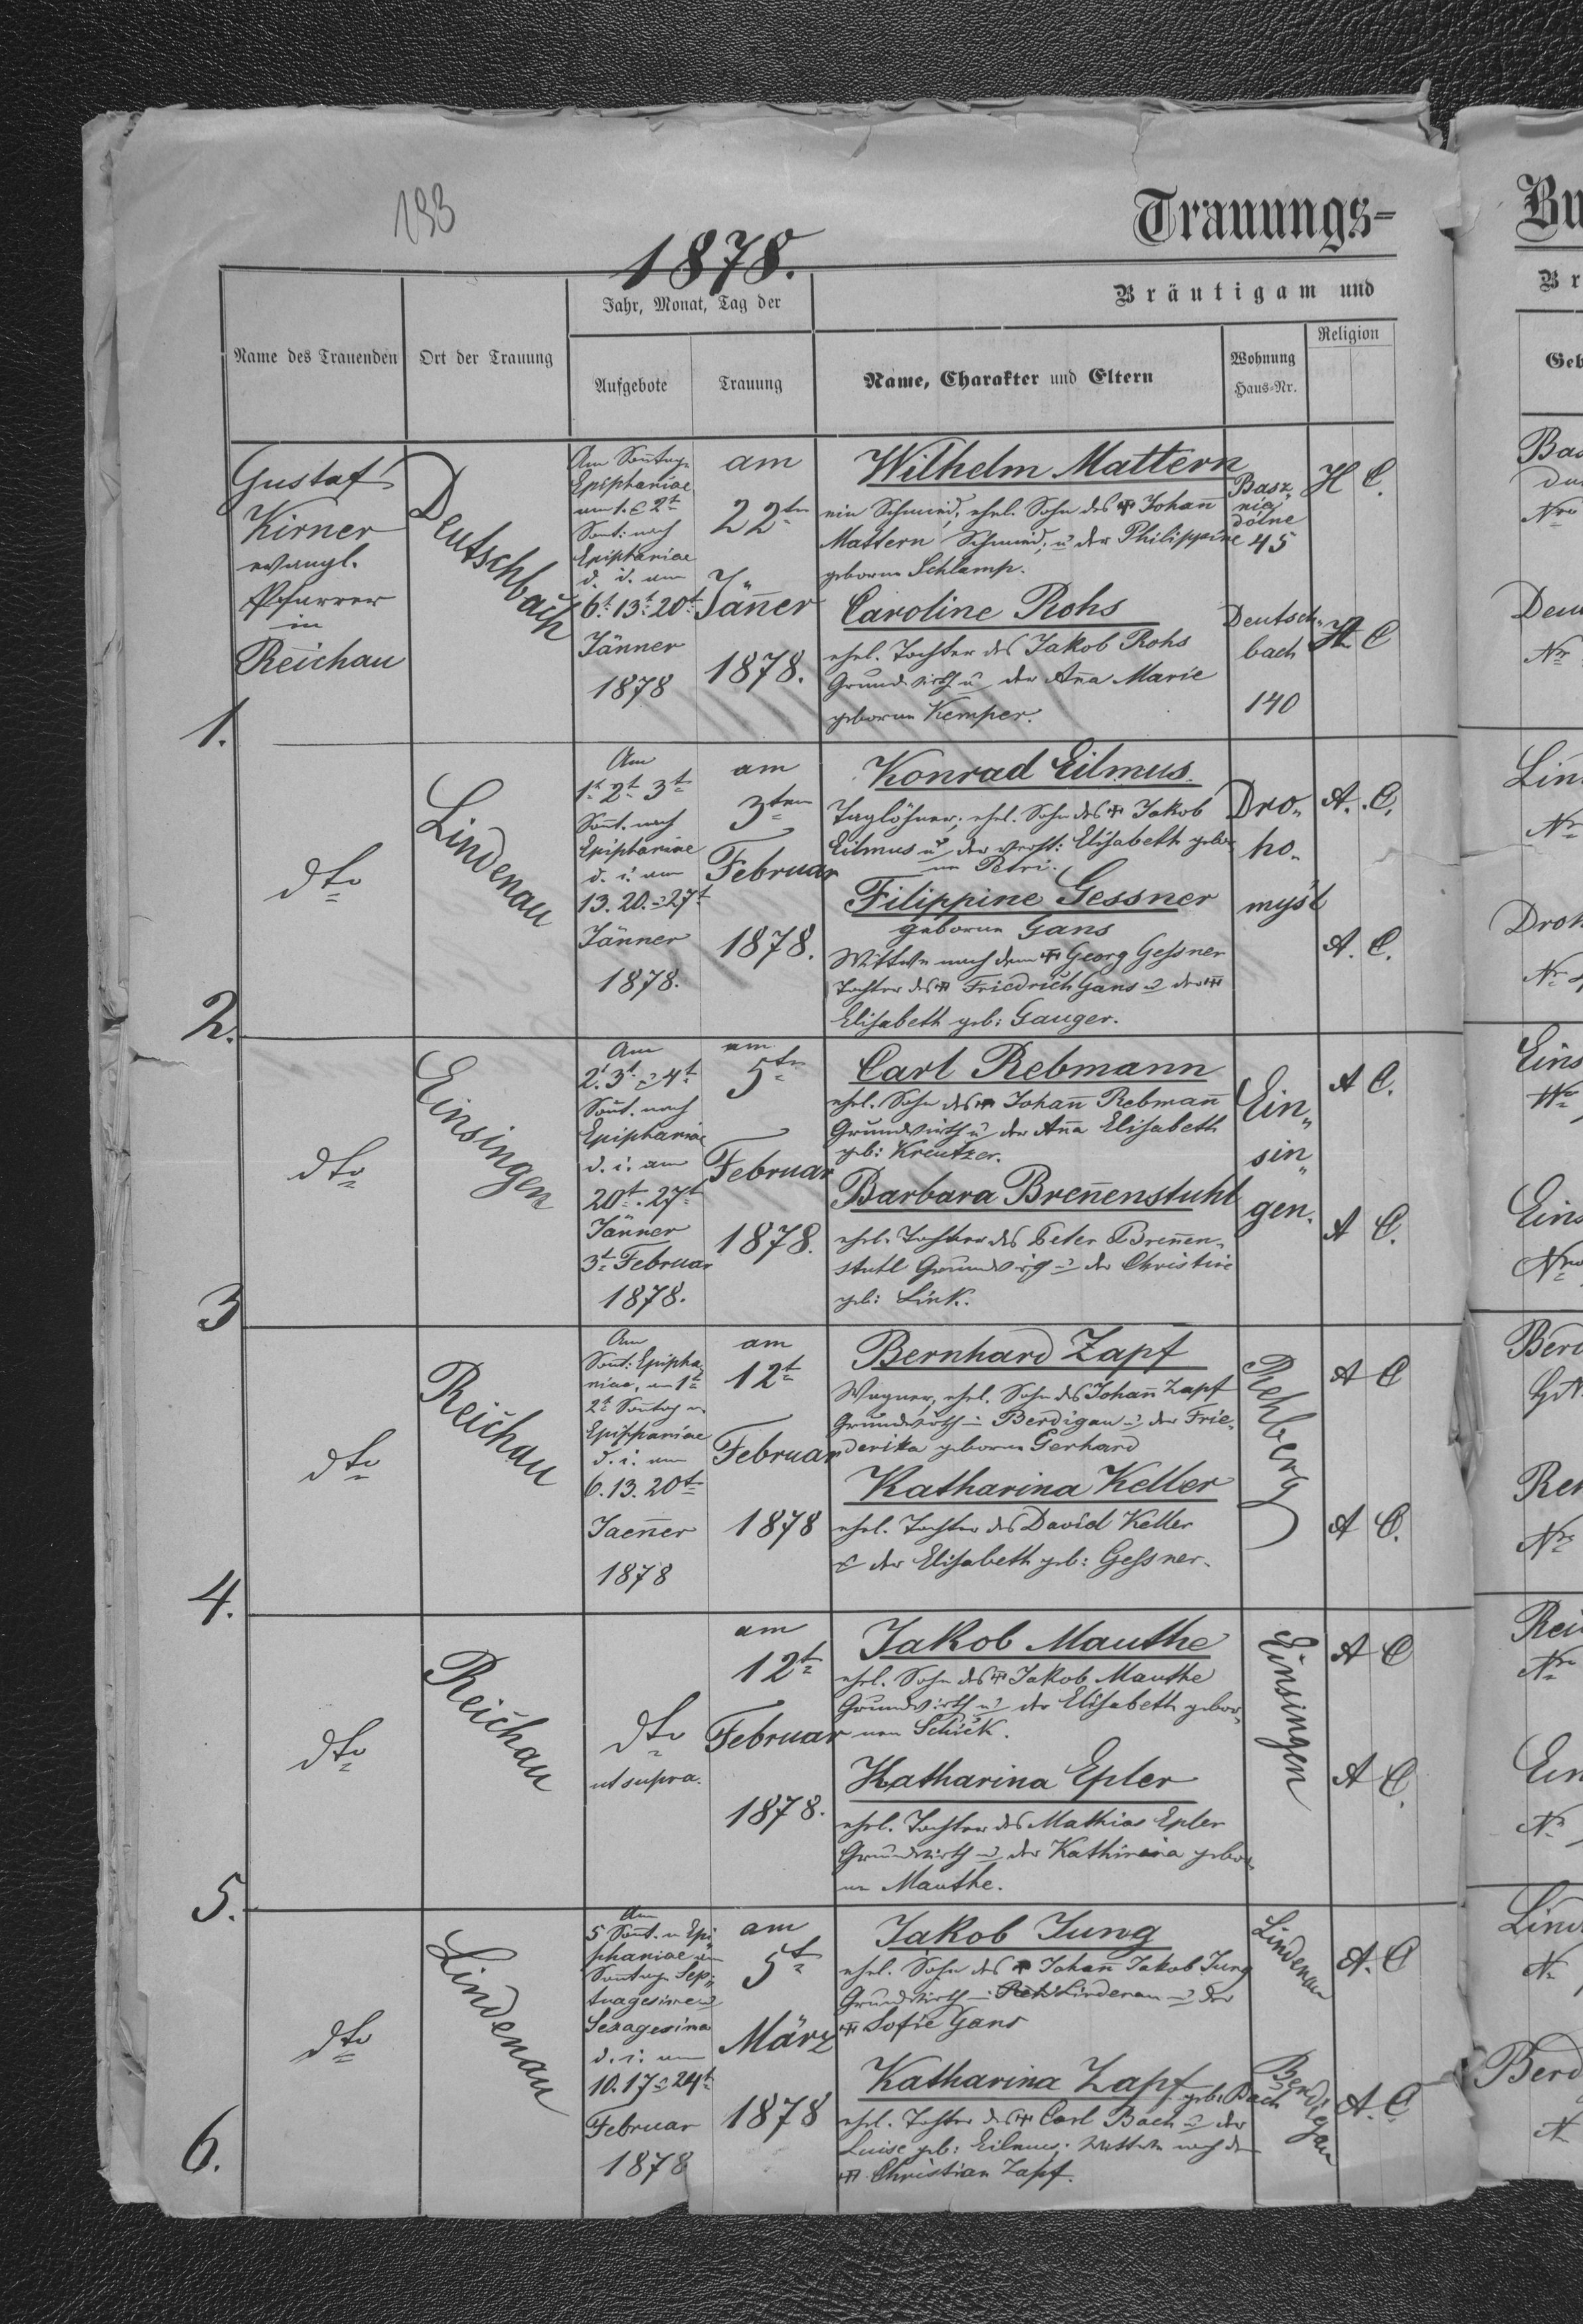 193
Trauungs-
Bu
1878.
Name des Trauenden
Ort der Trauung
Jahr, Monat, Tag der
Aufgebote
Trauung
Bräutigam und
Br
Name, Charakter und Eltern
Wohnung
Haus-Nr.
Religion
Geb
1.
Gustaf
Kirner
evangl.
Pfarrer
in
Reichau
Deutschbach
Am Sonntage
Epiphaniae
am 1. & 2t
Sont: nach
Epiphaniae
d. i. am
6t 13t 20t
Jänner
1878
am
22ten
Jänner
1878.
Wilhelm Mattern
ein Schmied, ehel. Sohn des Johann
Mattern Schmied, u der Philippine
geborne Schlamp.
Basz„
nia
dólne
45
H C.
Caroline Rohs
ehel. Tochter des Jakob Rohs
Grundwirth u der Anna Marie
geborne Kemper.
Deutsch„
bach
140
H C
2.
dto
Lindenau
Am
1t 2t 3t
Sont. nach
Epiphaniae
d. i. am
13. 20. u 27t
Jänner
1878.
am
3ten
Februar
1878.
Konrad Eilmus
Taglöhner, ehel. Sohn des Jakob
Eilmus u der verst: Elisabeth gebor„
ne Petri.
Dro„
ho„
myśl
A. C.
Filippine Gessner
geborne Gans
Wittwe nach dem Georg Gessner
Tochter des Friedrich Gans u der
Elisabeth geb: Gauger.
A. C.
3
dto
Einsingen
Am
2t 3t u 4t
Sont. nach
Epiphaniae
d. i. am
20t 27t
Jänner
3t Februar
1878.
am
5ten
Februar
1878.
Carl Rebmann
ehel. Sohn des Johann Rebmann
Grundwirth u der Anna Elisabeth
geb: Kreutzer.
Ein„
sin„
gen.
A C.
Barbara Brennenstuhl
ehel. Tochter des Peter Brennen„
stuhl Grundwirth u der Christine
geb: Link.
A C.
4.
dto
Reichau
Am
Sont: Epipha„
niae, am 1t
2t Sonntag n.
Epiphaniae
d. i. am
6. 13. 20t
Jaenner
1878
am
12t
Februar
1878
Bernhard Zapf
Wagner, ehel. Sohn des Johann Zapf
Grundwirth in Berdigau u der Frie„
derika geborne Gerhard
Rehberg
A C
Katharina Keller
ehel. Tochter des David Keller
& der Elisabeth geb: Gessner.
A C.
5.
dto
Reichau
dto
ut supra.
am
12t
Februar
1878.
Jakob Mauthe
ehel. Sohn des Jakob Mauthe
Grundwirth u der Elisabeth gebor„
nen Schick.
Einsingen
A C
Katharina Epler
ehel. Tochter des Mathias Epler
Grundwirth u der Katharina gebor„
ne Mauthe.
A C.
6.
dto
Lindenau
Am
5 Sont. n. Epi„
phaniae am
Sonntage Sep„
tuagesime u
Sexagesima
d. i. am
10. 17 u 24t
Februar
1878
am
5t
März
1878
Jakob Jung
ehel. Sohn des Johann Jakob Jung
Grundwirth in Lindenau u der
Sofie Gans
Lindenau
A. C
Katharina Zapf geb: Bach
ehel. Tochter des Carl Bach u der
Luise geb: Eilmus; Wittwe nach dem
Christian Zapf.
Berdigau
A. C